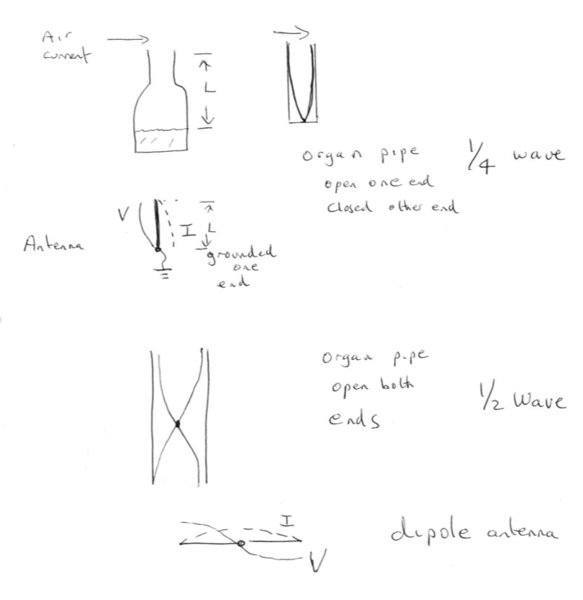 Air
current
L
Organ pipe
open one end
closed other end
1/4 wave
Antenna
V
I
L
grounded
one
end
Organ pipe
open both
ends
1/2 Wave
I
V
dipole antenna